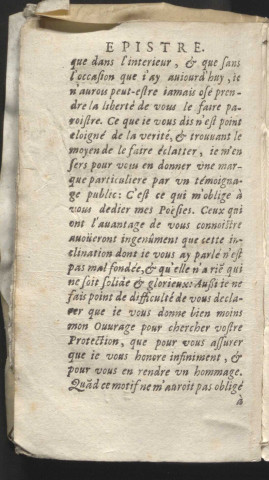 EPISTRE.
que dans l'interieur, & que sans
l'occasion que i'ay aujourd'huy, ie
n'aurois peut-estre iamais osé pren-
dre la liberté de vous le faire pa-
roistre. Ce que ie vous dis n'est point
eloigné de la verité, & trouuant le
moyen de le faire éclatter, ie m'en
sers pour vous en donner vne mar-
que particuliere par vn témoigna-
ge public: C'est ce qui m'oblige à
vous dedier mes Poësies. Ceux qui
ont l'auantage de vous connoistre
auoüeront ingenûment que cette in-
clination dont ie vous ay parlé n'est
pas mal fondée, & qu'elle n'a riẽ qui
ne soit solide & glorieux: Aussi ie ne
fais point de difficulté de vous decla-
rer que ie vous donne bien moins
mon Ouurage pour chercher vostre
Protection, que pour vous assurer
que ie vous honore infiniment, &
pour vous en rendre vn hommage.
Quãd ce motif ne m'auroit pas obligé
à